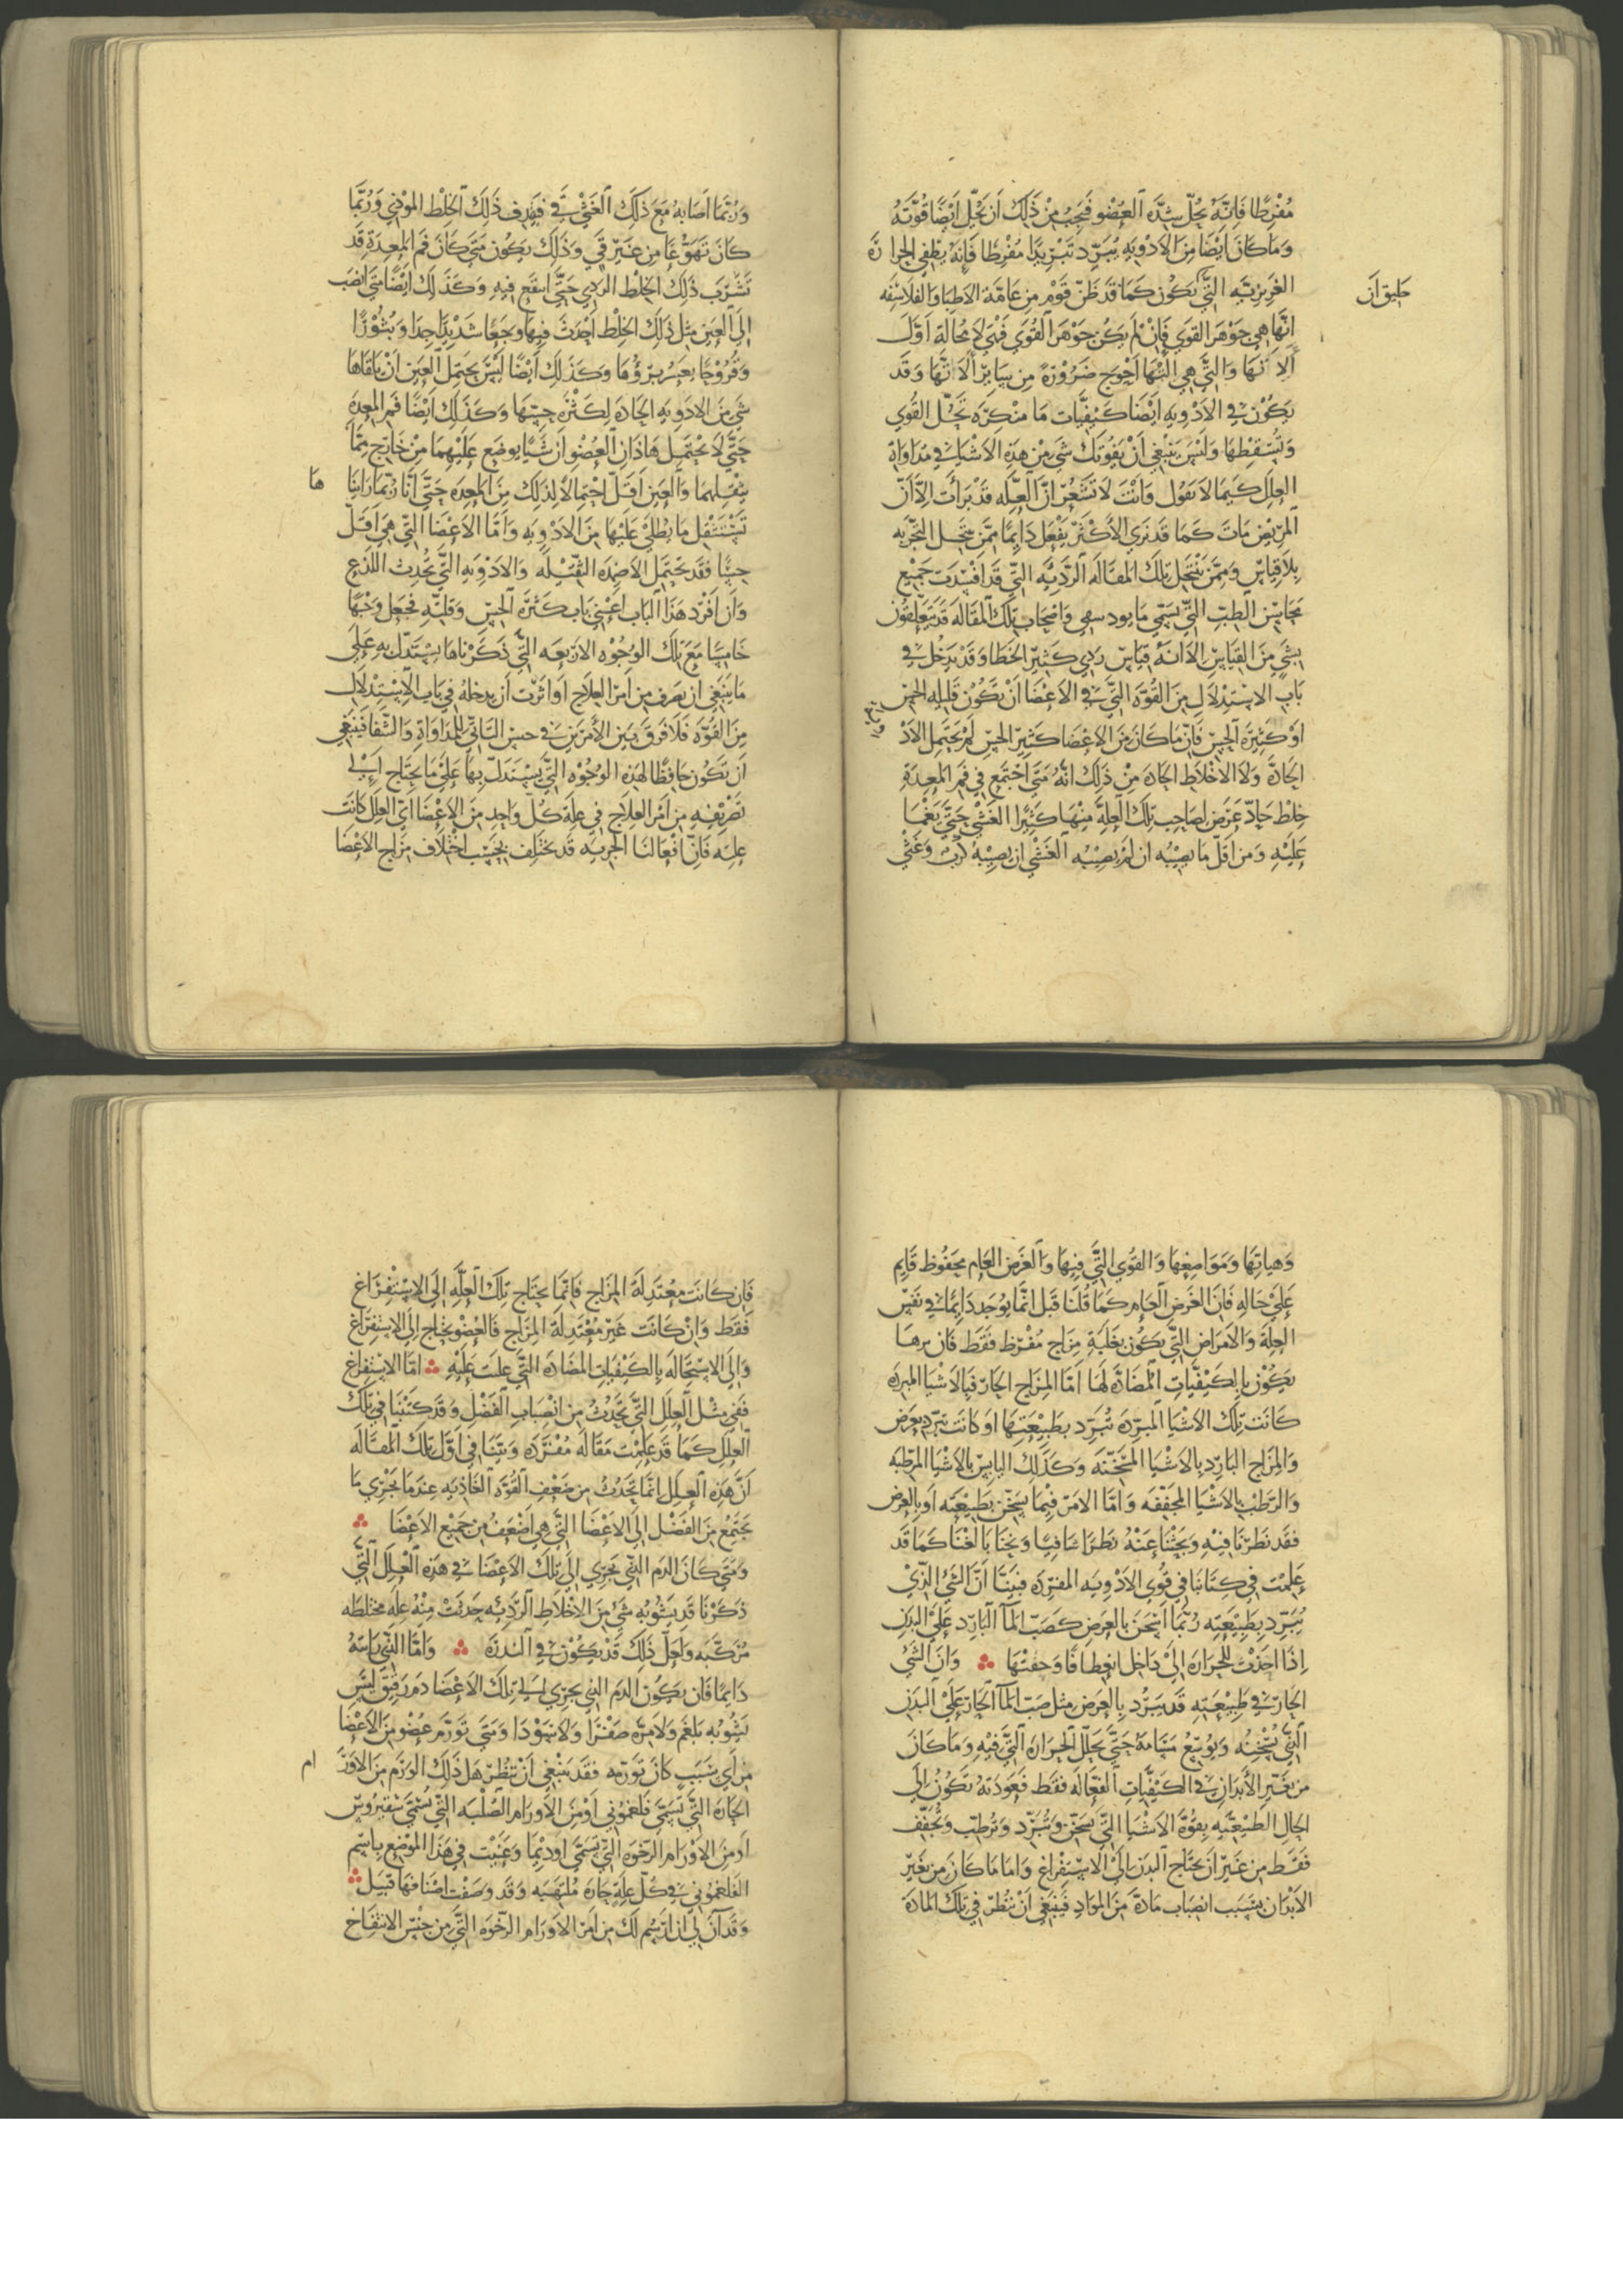 مُفْرِطًا فَإِنَّهُ يُحِلّ شِدَّه العُضْو فَيَجِبُ مِنْ ذَلِكَ اَن يُحِلّ اَيْضًا قُوَّتَهُ
وَمَا كَانَ اَيْضًا مِنَ الاَدْوِيَهِ يُبَرِّد تَبْرِيْدًا مُفْرِطًا فَإِنَهُ يُطْفِي الحَرا رَّة
الغَرِيْزِيَّه الَّتِي يَكُون كَمَا قَد ظَنّ قَوْم مِن عَامَّة الاَطِبَّا وَالفَلاسِفَه
اِنَّهَا هِي جَوْهَر القُوَي فَإِنْ لَم يَكُن جَوْهَر القُوَي فَهْيَ لا مُحَالَة اَوَّل
اَلاَتهَا وَالَّتِي هِي اِلَيْهَا اَحْوَج ضَرُوْرَةً مِن سَايِر اَلاَتهَا وَقَد
يَكُوْن في الاَدْوِيَه اَيْضًا كَيْفِيَّات مَا مُنْكرَه تَحُلّ القُوي
وَتُسْقِطهَا وَلَيْسَ يَنْبَغِي اَنْ يَفُوتَك شَي مِنْ هَذِهِ الاَشْيَا في مُدَاوَاة
العِلَل كَيمَا لاَ يَقُول وَاَنْتَ لاَ تَشْعُر اِنَّ العِلَّه قَد بَرَأَت اِلاَّ اَنّ
المَرِيْض مَاتَ كَمَا قَد نَرَي الاَكْثَر يَفْعَل دَايِمًا مِمَّن يَنتَحِل التَّجْرِبَه
بِلاَ قِيَاسٍ وَمِمَّن يَنْتَحِل تِلْكَ المَقَالَه الرَّدِيَّه الَّتِي قَد اَفسَدَتَ جَمِيْعَ
مَحَاسِن الطِّبِّ الَّتِي يُسَمَّي مَا يود سهي وَاَصْحَاب تِلْكَ المَقَالَه قَد يَتَعَلَّقُوْن
بِشَيٍ مِنَ القِيَاسِ اِلاَّ اَنَّهُ قِيَاسٌ رَدِي كَثِيْر الخَطَا وَقَد يَدْخُل فِي
بَاب الاِسْتِدْلاَل مِنَ القُوَّه الَّتِي في الاَعْضَا اَنْ تَكُوْنَ قَلِيْلَه الحِسّ
اَوْ كَثِيْرَة الحِسّ فَاِنّ مَا كَانَ مِنَ الاَعْضَا كَثِيْر الحِسّ لَم يَحتَمِل الاَدْ
الحَادَّة وَلاَ الاَخْلاَط الحَادّه مِنْ ذَلِكَ اَنَّهُ مَتَي اجْتَمَع فِي فَمِ المَعِدَة
خِلْط حَادّ عَرَض لِصَاحِب تِلْكَ العِلَّةَ مِنْهَا كَثِيْرا الغَشْي حَتَّي يُغْمَا
عَلَيْهِ وَمن اَقَلّ مَا يُصِيْبُه ان لَم يُصِيْبُه الغَشْي ان يُصِيْبَهُ كَرْبٌ وَغَثْي
وَرُبَّمَا اَصَابهُ مَعَ ذَلِكَ الغَثْي قَي فَيَقْذِف ذَلِكَ الخِلْط المُوْذِي وَرُبَّمَا
كَانَ تَهَوُّعًا مِن غَيْرِ قَي وَذَلِكَ يَكُوْن مَتَي كَانَ فَم المَعِدَة قَد
تَشَرَّب ذَلِكَ الخِلْط الرَّدِي حَتَّي انتَقَع فِيهِ وَكَذَلِكَ اَيْضًا مَتَي انصَبَ
اِلَي العَيْنِ مِثل ذَلِكَ الخِلْط اَحْدَثَ فِيهَا وَجَعًا شَدِيْدًا جِدًا وَبُثُوْرًا
وَقُرُوْحًا يَعْسُر بِرْؤُهَا وَكَذَلِكَ اَيْضًا لَيْسَ يَحتَمِل العَيْن اَنْ يَلقَاهَا
شَي مِنَ الاَدوِيَه الحَادّه لِكَثْرَه حِسّهَا وَكَذَلِكَ اَيْضًا فَم المَعِدَه
حَتَّي لاَ يَحْتَمِل هَاذَانِ العُضْوانِ شَيًا يوضَع عَلَيْهِمَا مِنْ خَارِج مِمَّا
يُثقِلهمَا وَالعَيْن اَقَلّ احْتِمَالاً لِذَلِكَ مِنَ المَعِدَه حَتَّي اَنَّا رُبَّمَا رَايْنَا
تَستَثْقِل مَا يُطلَي عَلَيْهَا مِنَ الاَدْوِيَه وَاَمَّا الاَعْضَا الَّتِي هِيَ اَقَلّ
حِسًّا فَقَد تَحْتَمِل الاَضْمِدَه الثَّقِيْلَه وَالاَدْوِيَه الَّتِي تُحْدِث اللَّذْع
وَاَن اَفْرَدَ هَذَا البَاب اَعْنِي بَاب كَثْرَة الحِسّ وَقِلَّتِهِ فَجَعَل وَجْهًا
خَامِسًا مَعَ تِلْكَ الوُجُوْه الاَرْبَعَه الَّتِي ذَكَرْنَاهَا يَسْتَدِلّ بِهِ عَلَي
مَا يَنْبَغِي ان يَعرِف مِن اَمْر العِلاَج اَو اثَرْت اَن يدخلهُ فِي بَاب الاِسْتِدْلاَل
مِنَ القُوَّه فَلاَ فَرْقَ بَيْنَ الاَمْرَيْنِ في حسن التَّاتِّي لِلمُدَاوَاةِ وَالشِّفَا فَيَنْبَغِي
اَن تَكُوْنَ حَافِظًا لِهَذِه الوُجُوْه الَّتِي يَسْتَدِلّ بِهَا عَلَي مَا يَحتَاج اِلي
تَصْرِيْفِهِ مِن اَمْر العِلاَج فِي عِلَّة كُلّ وَاحِد مِنَ الاَعْضَا ايّ العِلَل كَانَت
عِلَّتِه فَإِنّ اَفْعَالنَا الجُزيِيَّه قَد تَخْتَلِف بِحَسَبِ اخْتِلاَف مِزَاج الاَعْضَا
هَا
وَهَياتِهَا وَمَوَاضِعِهَا وَالقُوَي الَّتِي فِيهَا وَالغَرَض العَام مَحْفُوظ قَايِم
عَلَي حَالِهِ فَاَنّ الغَرَض العَام كَمَا قُلْنَا قَبْل اِنَّمَا يُوْجَد دَايِمًا في نَفْسِ
العِلَّة وَالاَمْرَاض الَّتِي يَكُوْن بِغَلَبَةِ مِزَاج مُفْرِط فَقَط فَاَن برهَا
يَكُوْن بِالكَيْفِيَّاتِ المُضَادَّة لَهَا اَمَّا المِزَاج الحَارّ فَبِالاَشْيَا المبرده
كَانَت تِلْكَ الاَشْيَا المُبَرّده تُبَرِّد بِطَبِيْعَتِهَا اَو كَانَت تبَرّد بِعَرَض
وَالمِزَاج البَارِد بِالاَشْيَا المُسَخّنه وَكَذَلِكَ اليَابِس بِالاَشْيَا المُرَطّبَه
وَالرَّطْب بِالاَشْيَا المُجَفّفَه وَاَمَّا الاَمْر فِيمَا يُسَخّن بِطَبِيْعَتِه اَوبِالعَرَض
فقَد نَظَرْنَا فِيْهِ وَبَحَثْنَا عَنْهُ نَظَرًا شَافِيًا وَبَحثًا بَالغْنَا كَمَا قَد
عَلِمْت فِي كِتَابنَا فِي قُوَي الاَدْوِيَه المفرَده فَبَيّنَّا اَنَّ الشَّيْ الَّذِي
يُبَرِّد بِطَبِيْعَتِه رُبَّمَا اَسْخَن بِالعَرَضِ كَصَبّ المَآ البَارِد عَلَي البَدَن
اِذَا اَحْدَث لِلْحَرَارَةِ اِلَيْ دَاخِل انعِطَافًا وَحقنْهَا ؞ وَانّ الشَّيْ
الحَارّ في طَبِيْعَتِهِ قَد يُبَرِّد بِالعَرَض مِثل صَبّ المَآ الحَارّ عَلَي البَدَن
الَّذِي يُسَخّنُه وَيُوسّع مَسَامهُ حَتَّي يُحَلّل الحَرَارَه الَّتِي فِيْهِ وَمَا كَانَ
مِن تَغَيُّر الاَبْدَان في الكَيْفِيَّاتِ الفَعَّالَه فَقَط فَعَودَتهُ تَكُوْن اِلَي
الحَال الطَّبِيْعِيَّه بِقُوَّة الاَشْيَا الَّتِي تُسَخّن وَتُبَرِّد وَتُرَطِّب وَتُجَفّف
فَقَط مِن غَيْر اَن يَحتَاج البَدَن اِلَي الاِسْتِفْرَاغ وَامَا مَا كَانَ مِن تَغَيّر
الاَبْدَان بِسَبَبِ انصِبَاب مَادّة مِنَ المَوَاد فَيَنْبَغِي اَنْ تَنْظُر فِي تِلْكَ المَادَّة
فَاِن كَانَت مُعْتَدِلَة المِزَاج فَاِنَّمَا يَحتَاج تِلْكَ العِلَّةِ اِلَي الاِسْتِفْرَاغ
فَقَط وَاِنْ كَانَت غَيْر مُعْتَدِلَة المِزَاج فَالعُضْو يَحتَاج اِلَي الاِسْتِفْرَاغ
وَاِلَي الاِسْتِحَالَه بِالكَيْفِيَّاتِ المُضَادّه الَّتِي غلبَت عَلَيْهِ ؞ اَمَّا الاِسْتِفْرَاغ
فَفِي مِثْل العِلَل الَّتِي تَحْدُث مِن انصِبَاب الفَضْل وَقَد كَتَبْنَا فِي تِلْكَ
العِلَل كَمَا قَد عَلِمْت مَقَالَه مُفْرَدَه وَبَيَّنَّا فِي اَوّل تِلْكَ المقَالَه
اَنّ هَذِه العِلَل اِنَّمَا تَحْدُث مِن ضَعْفِ القُوَّه الغَاذِيَه عِندَمَا يَجْرِي مَا
يَجْتَمِع مِنَ الفَضْل اِلَي الاَعْضَا الَّتِي هِي اَضْعَفُ مِن جَمِيْع الاَعْضَا ؞
وَمَتَي كَانَ الدَّم الَّذِي يَجرِي اِلَي تِلْكَ الاَعْضَا في هَذِه العِلَل الَّتِي
ذَكَرْنَا قَد يَشُوْبُه شَيْ مِنَ الاَخْلاَط الرَّدِيَّه حَدَثَتْ مِنْهُ عِلَّه مختلطَه
مُرَكّبَه وَاحلّ ذَلِكَ قَد يَكُوْن في النُدرَة ؞ وَاَمَّا الَّذِي رَايتهُ
دَايِمًا فَاَن يَكُوْن الدَّم الَّذِي يَجرِي اِلي تِلْكَ الاَعْضَا دَم رَقِيْق لَيْسَ
يَشُوْبُه بَلغَم وَلاَ مِرَّه صَفْرَا وَلاَ سَوْدَا وَمَتَي تَوَرَّم عُضْو مِنَ الاَعْضَا
مِن اَي سَبَبٍ كَانَ تَوَرّمه فَقَد يَنْبَغِي اَنْ تَنْظُرَ هَل ذَلِكَ الوَرَم مِنَ الاَوْرَ
ام
الحَارَّة الَّتِي تُسَمَّي فَلغمُوني اَوْ مِنَ الاَورَام الصُّلْبَه الَّتِي تُسَمَّي سْقِيْرُوس
اَو مِنَ الاَوْرَام الرَّخْوَه الَّتِي تُسَمَّي اَوذِيْمَا وَعَنَيْت فِي هَذَا المَوْضِع بِاسْمِ
الفَلغمُوني في كُلّ عِلَّةٍ حَارَّه مُلتَهبَه وَقَد وَصَفْت اَصْنَافهَا قَبْل ؞
وَقَد آنَ لِي اَن اَرْسُم لَك مِن اَمْر الاَوْرَام الرَّخْوَه الَّتِي مِن جِنْسِ الاِنْتِفَاخ